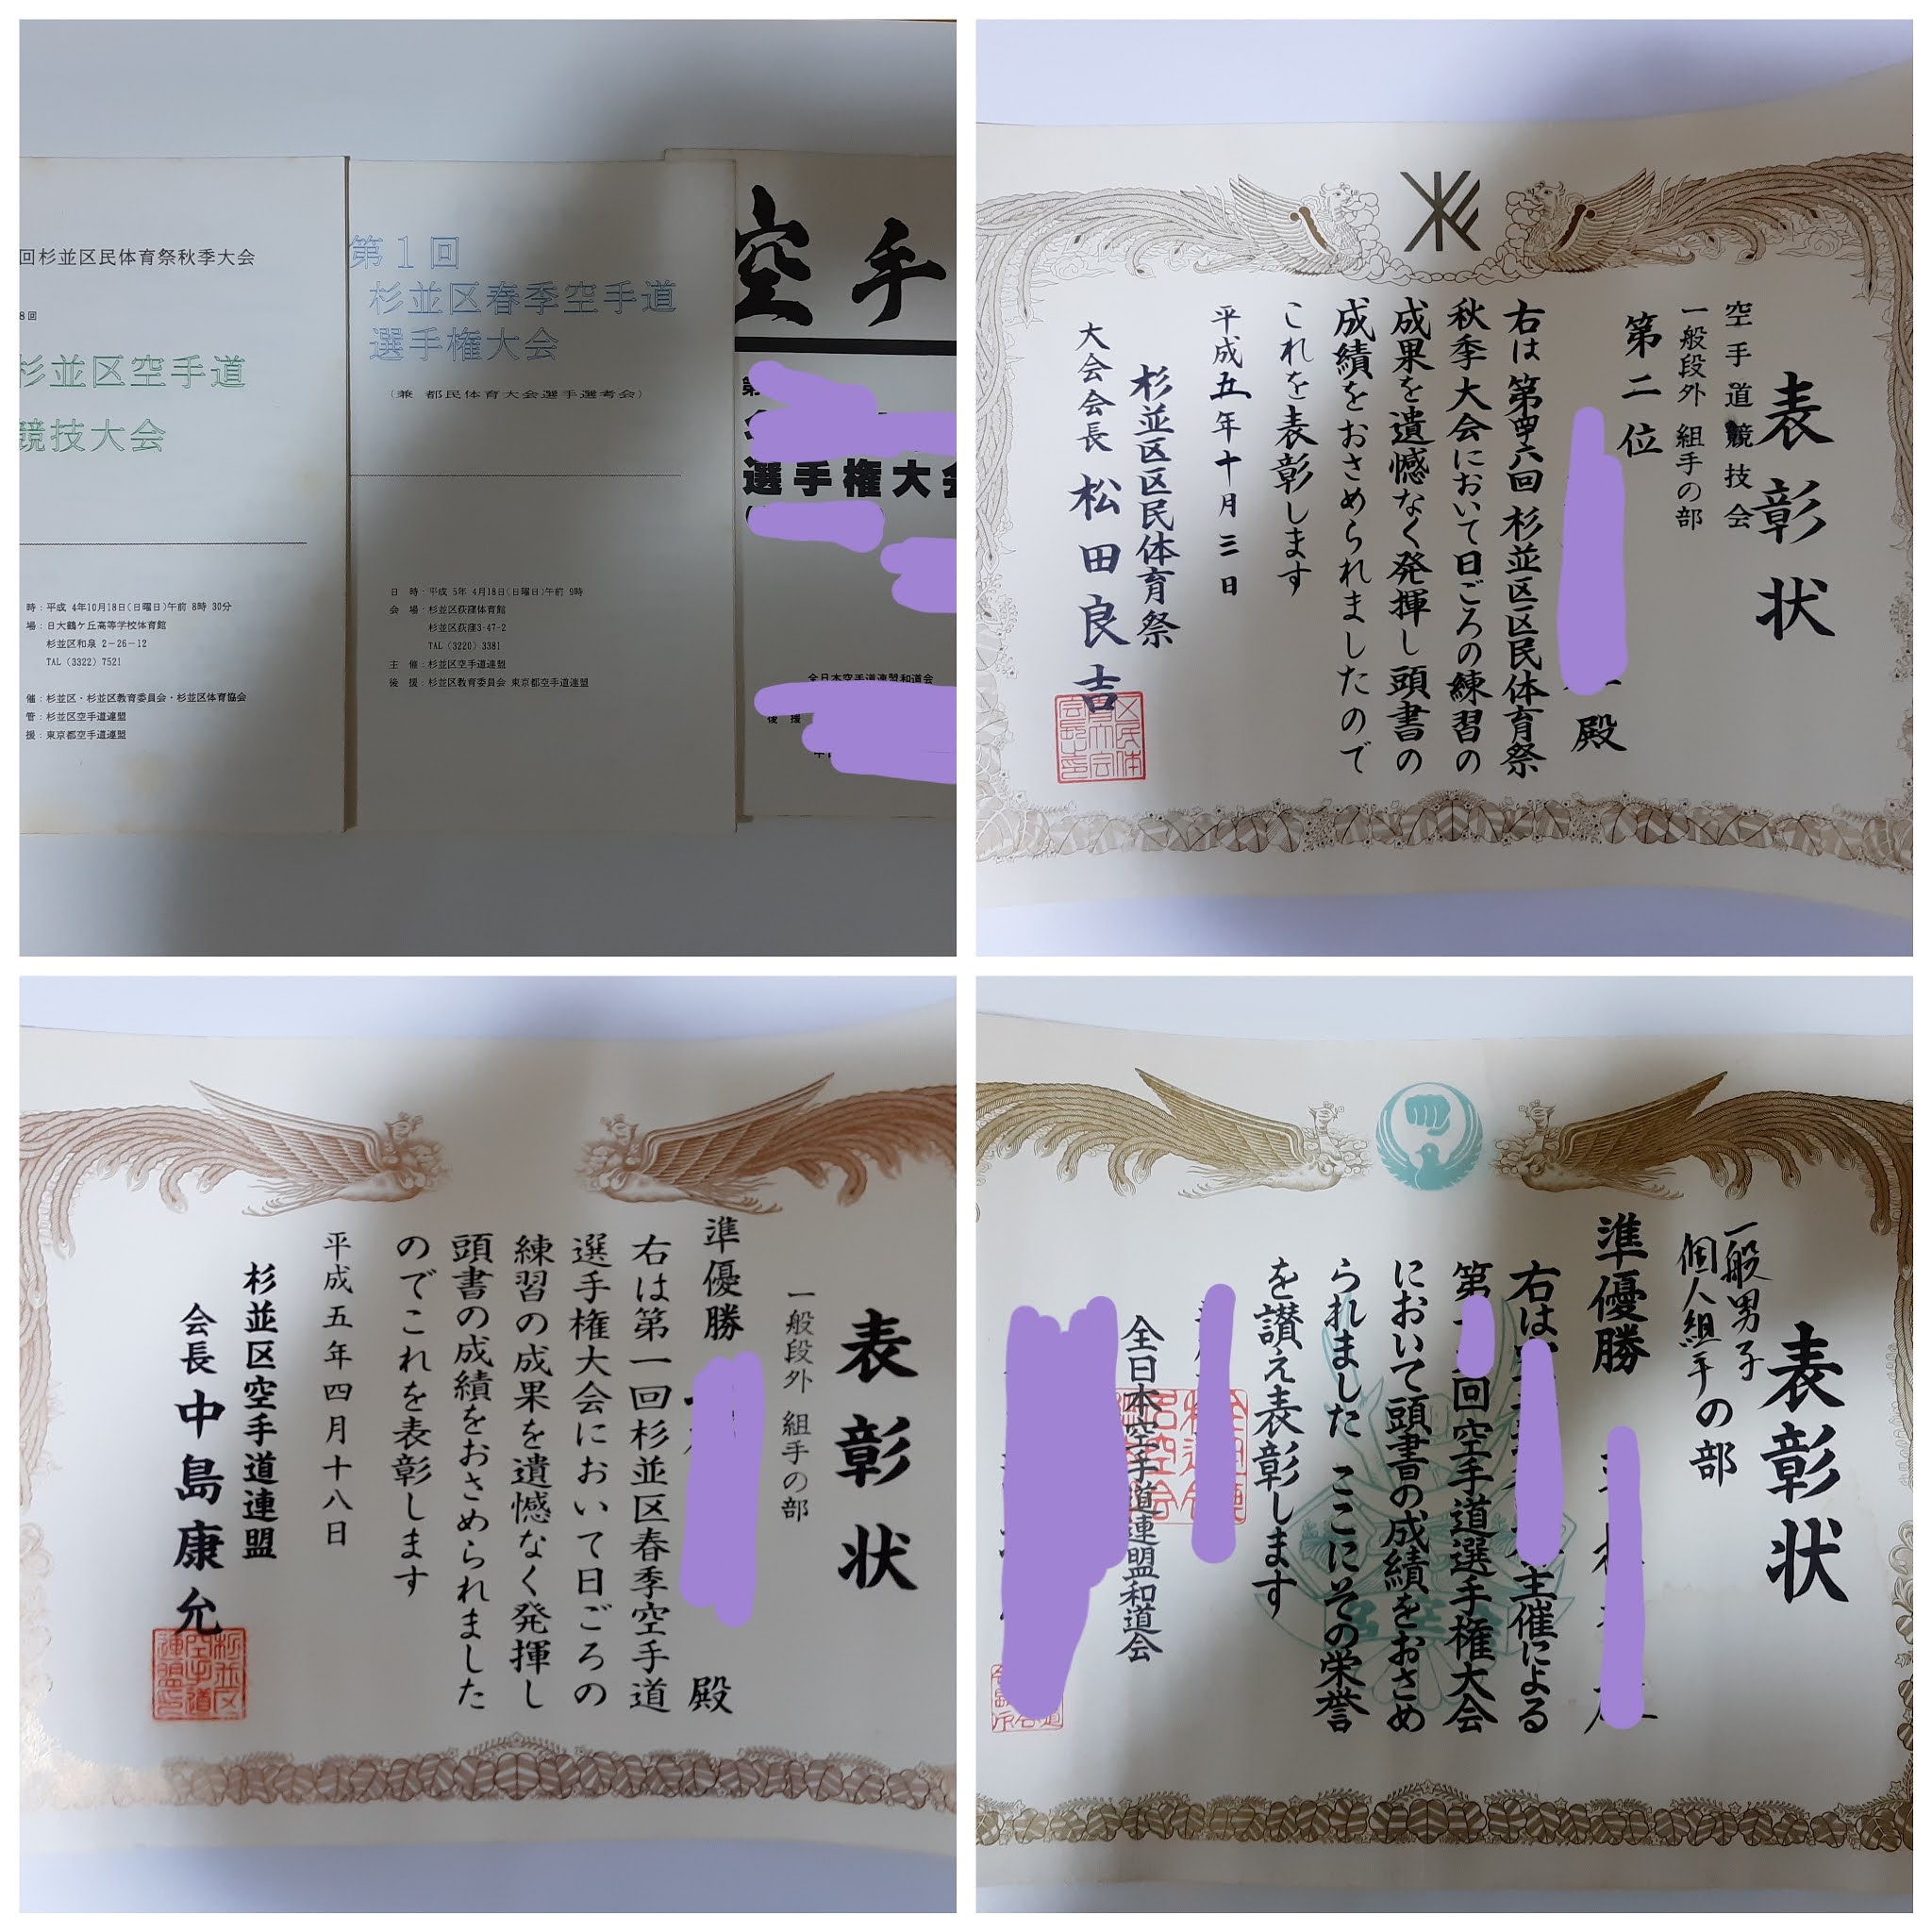 回杉並区民体育祭秋季大会
8回
杉並区空手道
競技大会
時：平成 4年10月18日(日曜日)午前 8時 30分
場：日大鶴ケ丘高等学校体育館
杉並区和泉 2－26－12
TAL (3322) 7521
催：杉並区・杉並区教育委員会・杉並区体育協会
管：杉並区空手道連盟
援：東京都空手道連盟
第1回
杉並区春季空手道
選手権大会
(兼 都民体育大会選手選考会)
日 時：平成 5年 4月18日(日曜日)午前 9時
会 場：杉並区荻窪体育館
杉並区荻窪3-47-2
TAL (3220) 3381
主 催：杉並区空手道連盟
後 援：杉並区教育委員会 東京都空手道連盟
空手
第
選手権大会
全日本空手道連盟和道会
後 援
表彰状
空手道競技会
一般段外 組手の部
第二位
殿
右は第四六回杉並区区民体育祭
秋季大会において日ごろの練習の
成果を遺憾なく発揮し頭書の
成績をおさめられましたので
これを表彰します
平成五年十月三日
杉並区区民体育祭
大会会長 松田良吉
表彰状
一般段外 組手の部
準優勝
殿
右は第一回杉並区春季空手道
選手権大会において日ごろの
練習の成果を遺憾なく発揮し
頭書の成績をおさめられました
のでこれを表彰します
平成五年四月十八日
杉並区空手道連盟
会長 中島康允
杉並区空手道連盟印
表彰状
一般男子
個人組手の部
準優勝
右は
主催による
第
回空手道選手権大会
において頭書の成績をおさめ
られました ここにその栄誉
を讃え表彰します
全日本空手道連盟和道会